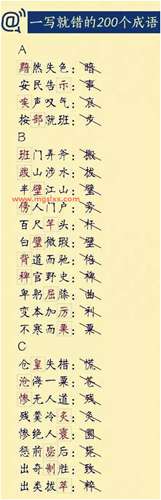 @ 一写就错的200个成语
A
黯然失色：暗
安民告示：事
唉声叹气：哀
按部就班：步
B
班门弄斧：搬
跋山涉水：拔
半壁江山：璧
傍人门户：旁
百尺竿头：杆
白璧微瑕：壁
背道而驰：弛
www.mgslxs.com
稗官野史：裨
卑躬屈膝：曲
变本加厉：利
不寒而栗：粟
C
仓皇失措：慌
沧海一粟：苍
惨无人道：残
残羹冷炙：灸
惨绝人寰：圜
惩前毖后：
出奇制胜：致
出类拔萃：粹